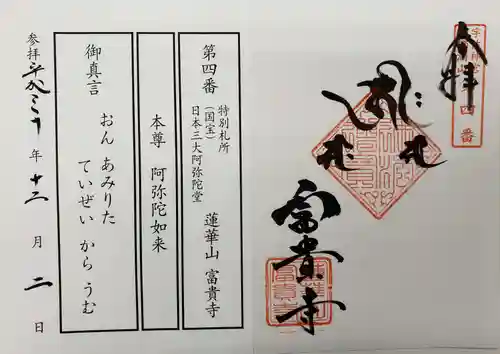 奉拝
四番
富貴寺
第四番
特別札所
(国宝)
日本三大阿弥陀堂
蓮華山 富貴寺
本尊 阿弥陀如来
御真言
おん あみりた
ていぜい から うむ
参拝 平成三十年 十二月 二日